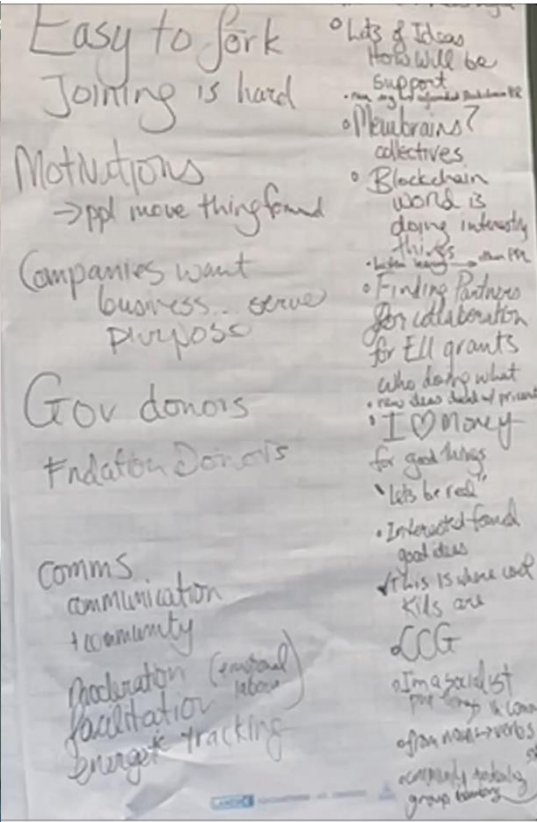 Easy to fork
Joining is hard
Motivations
→ppl move thing forward
Companies want
business... serve
purpose
Gov donors
Fndation Donors
comms
communication
+ community
moderation (emotional
labour)
facilitation
energetic tracking
Lots of Ideas
How will be
support
Membrains?
collectives
Blockchain
world is
doing interesting
things
Finding Partners
for collaboration
for EU grants
who doing what
new ideas
I ♡ Money
for good things
"Lets be real"
Interested
good ideas
This is where cool
Kids are
CCG
I'm a socialist
from noun → verbs
community
group